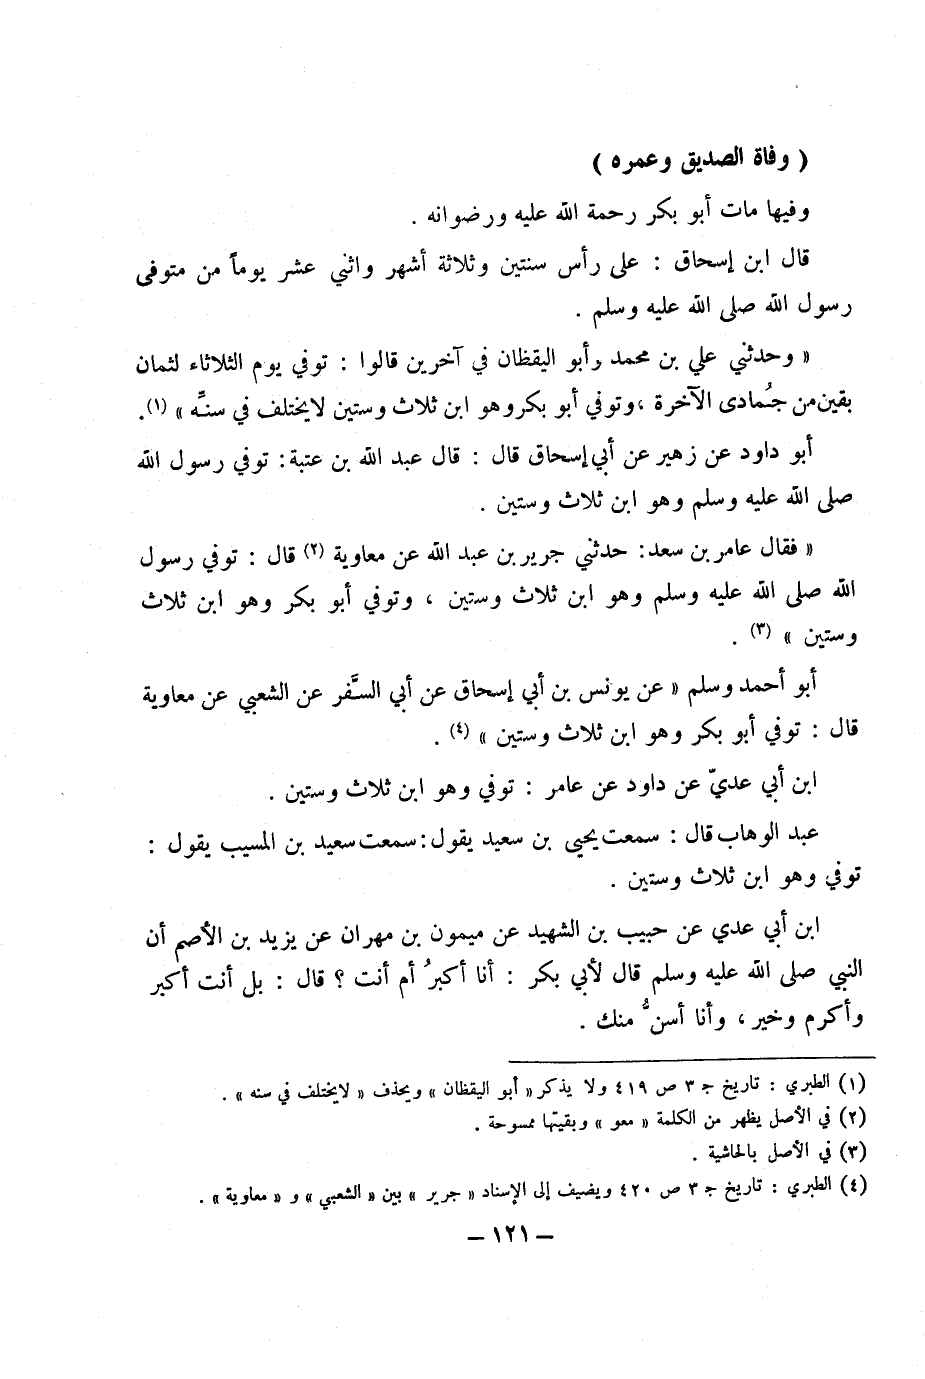 ( وفاة الصديق وعمره )
وفيها مات أبو بكر رحمة الله عليه ورضوانه .
قال ابن إسحاق : على رأس سنتين وثلاثة أشهر واثني عشر يوماً من متوفى
رسول الله صلى الله عليه وسلم .
« وحدثني علي بن محمد وأبو اليقظان في آخرين قالوا : توفي يوم الثلاثاء لثمان
بقين من جُمادى الآخرة ، وتوفي أبو بكر وهو ابن ثلاث وستين لا يختلف في سنِّه » (١).
أبو داود عن زهير عن أبي إسحاق قال : قال عبد الله بن عتبة : توفي رسول الله
صلى الله عليه وسلم وهو ابن ثلاث وستين .
« فقال عامر بن سعد : حدثني جرير بن عبد الله عن معاوية (٢) قال : توفي رسول
الله صلى الله عليه وسلم وهو ابن ثلاث وستين ، وتوفي أبو بكر وهو ابن ثلاث
وستين » (٣) .
أبو أحمد وسلم « عن يونس بن أبي إسحاق عن أبي السَّفر عن الشعبي عن معاوية
قال : توفي أبو بكر وهو ابن ثلاث وستين » (٤) .
ابن أبي عديّ عن داود عن عامر : توفي وهو ابن ثلاث وستين .
عبد الوهاب قال : سمعت يحيى بن سعيد يقول : سمعت سعيد بن المسيب يقول :
توفي وهو ابن ثلاث وستين .
ابن أبي عدي عن حبيب بن الشهيد عن ميمون بن مهران عن يزيد بن الأصم أن
النبي صلى الله عليه وسلم قال لأبي بكر : أنا أكبرُ أم أنت ؟ قال : بل أنت أكبر
وأكرم وخير ، وأنا أسنُّ منك .
(١) الطبري : تاريخ جـ ٣ ص ٤١٩ ولا يذكر « أبو اليقظان » ويحذف « لا يختلف في سنه » .
(٢) في الأصل يظهر من الكلمة « معو » وبقيتها ممسوحة .
(٣) في الأصل بالحاشية .
(٤) الطبري : تاريخ جـ ٣ ص ٤٢٠ ويضيف إلى الإسناد « جرير » بين « الشعبي » و « معاوية » .
– ١٢١ –